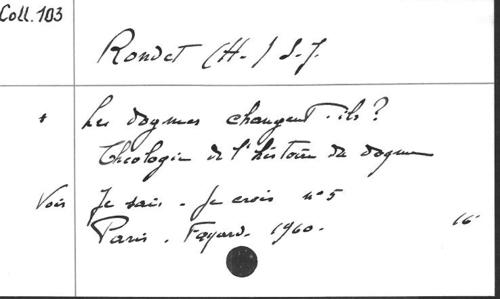 Coll. 103
Rondet (H.) S.J.
+ Les dogmes changent-ils?
Théologie de l'histoire du dogme
Voir Je sais. Je crois n° 5
Paris. Fayard. 1960. 16°